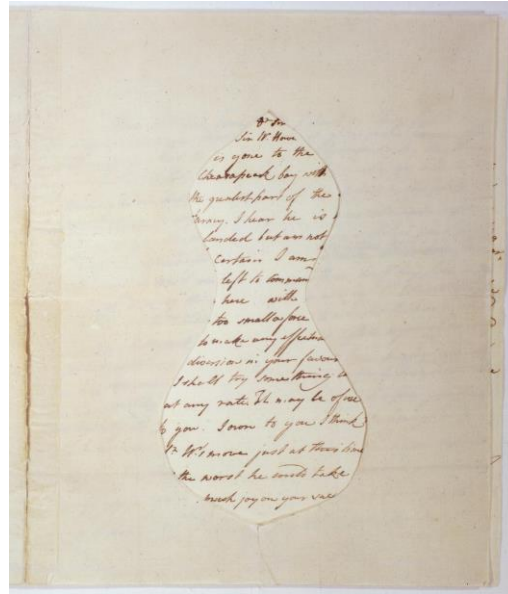 Dr Sir
Sir W. Howe
is gone to the
Chesapeak bay with
the greatest part of the
army. I hear he is
landed but am not
certain. I am
left to command
here with
too small a force
to make any effectual
diversion in your favour
I shall try something
at any rate. It may be of use
to you. I own to you I think
Sr Wr's move just at this time
the worst he could take
much joy on your